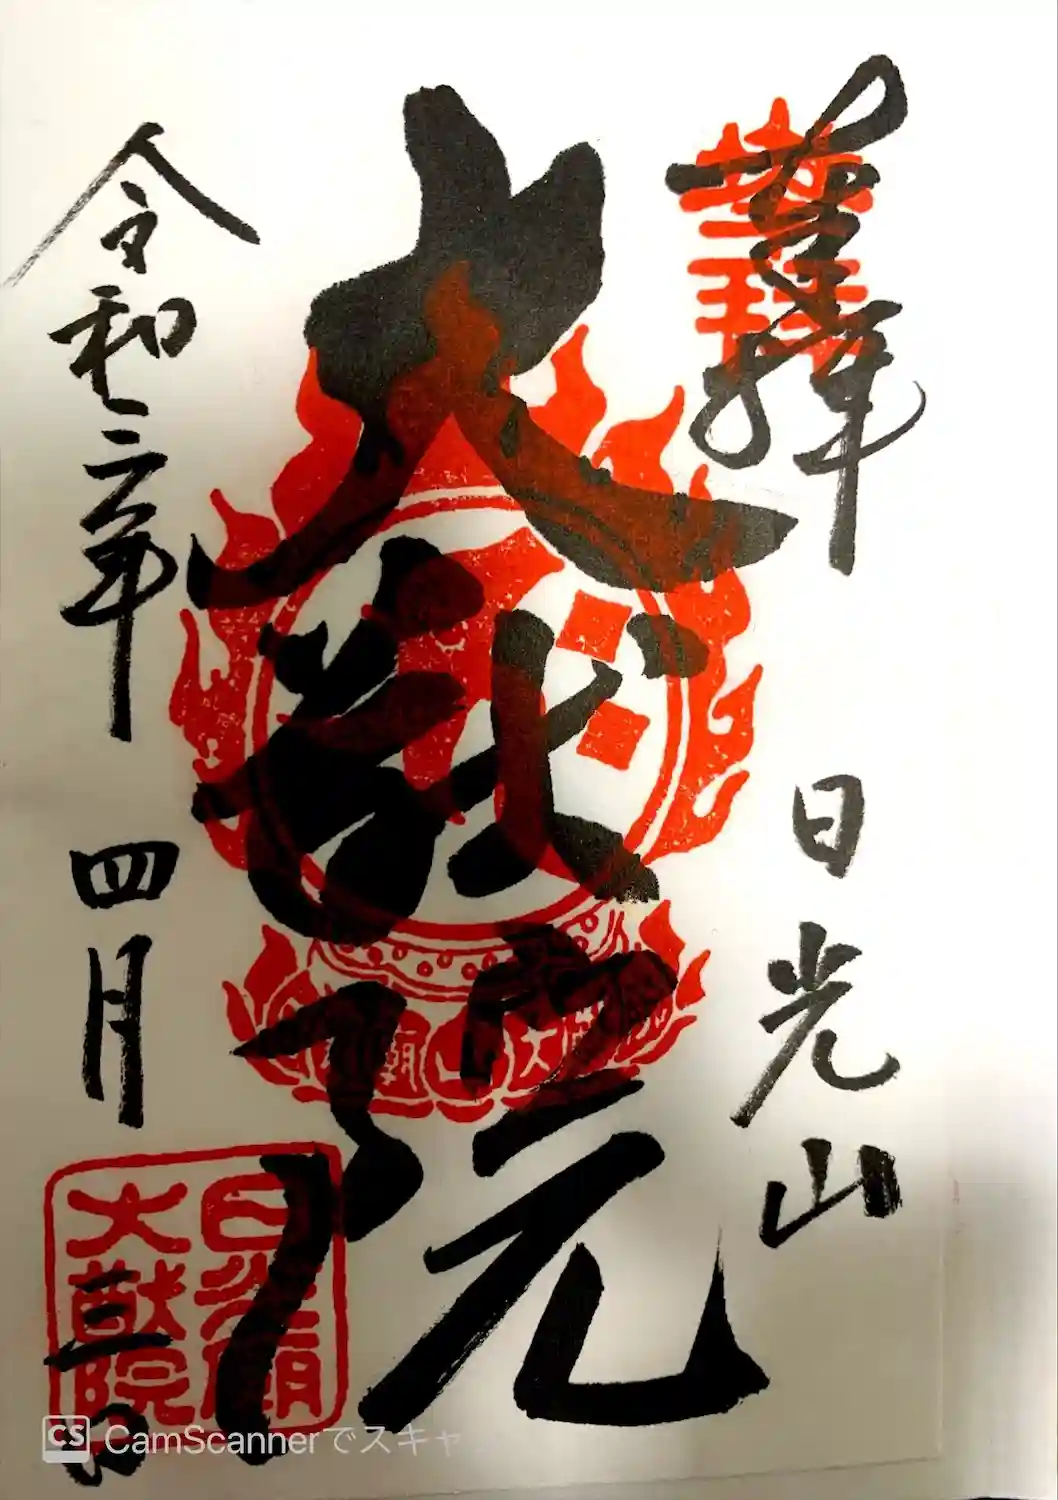 奉拝
日光山
大猷院
令和二年
四月
日
日光廟
大猷院
CS CamScannerでスキャ